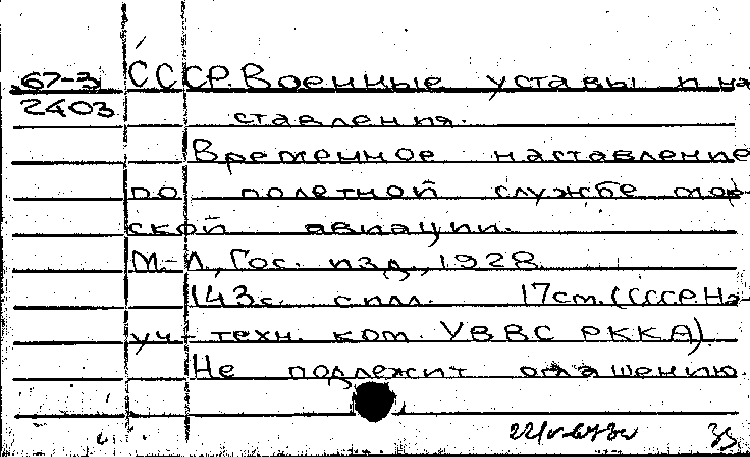 67-3 СССР. Военные уставы и на
2403 ставления.
Временное наставление
по полетной службе мор-
ской авиации.
М.-Л., Гос. изд., 1928
143 с. с илл. 17 см. (СССР. На-
уч.-техн. ком. УВВС РККА)
Не подлежит оглашению.
35